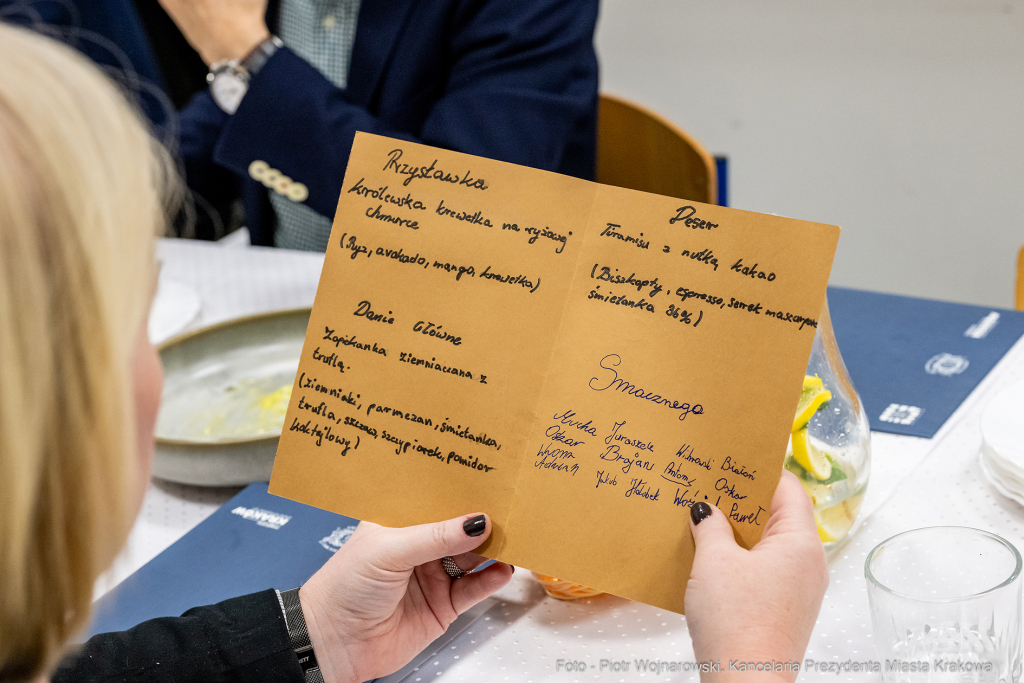 Przystawka
Królewska krewetka na ryżowej
chmurce
(Ryż, avokado, mango, krewetka)
Danie Główne
Zapiekanka ziemniaczana z
truflą.
(ziemniaki, parmezan, śmietanka,
trufla, szczaw, szczypiorek, pomidor
koktajlowy)
Deser
Tiramisu z nutką kakao
(Biszkopty, espresso, serek mascarpone
śmietanka 36%)
Smacznego
Mucha Juraszek Białoń
Oskar Brojan Antoni Oskar
Adrian Jakub Hołobek Paweł
KRAKÓW
Foto - Piotr Wojnarowski, Kancelaria Prezydenta Miasta Krakowa